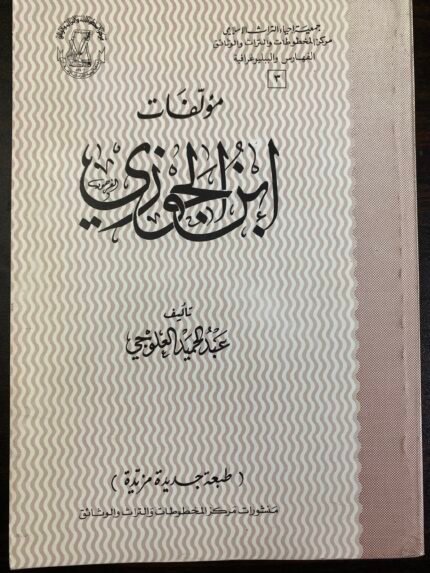 جمعية احياء التراث الاسلامي
مركز المخطوطات والتراث والوثائق
الفهارس والببليوغرافية
٣
مؤلفات
ابن الجوزي
تأليف
عبد الحميد العلوجي
(طبعة جديدة مزيدة)
منشورات مركز المخطوطات والتراث والوثائق